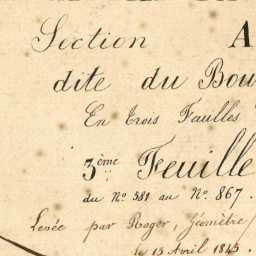 Section A
dite du Bou
En trois Faulles
3ème Feuille
du No. 581 au No. 867.
Levée par Roger, Géomètre
le 15 Avril 1845.